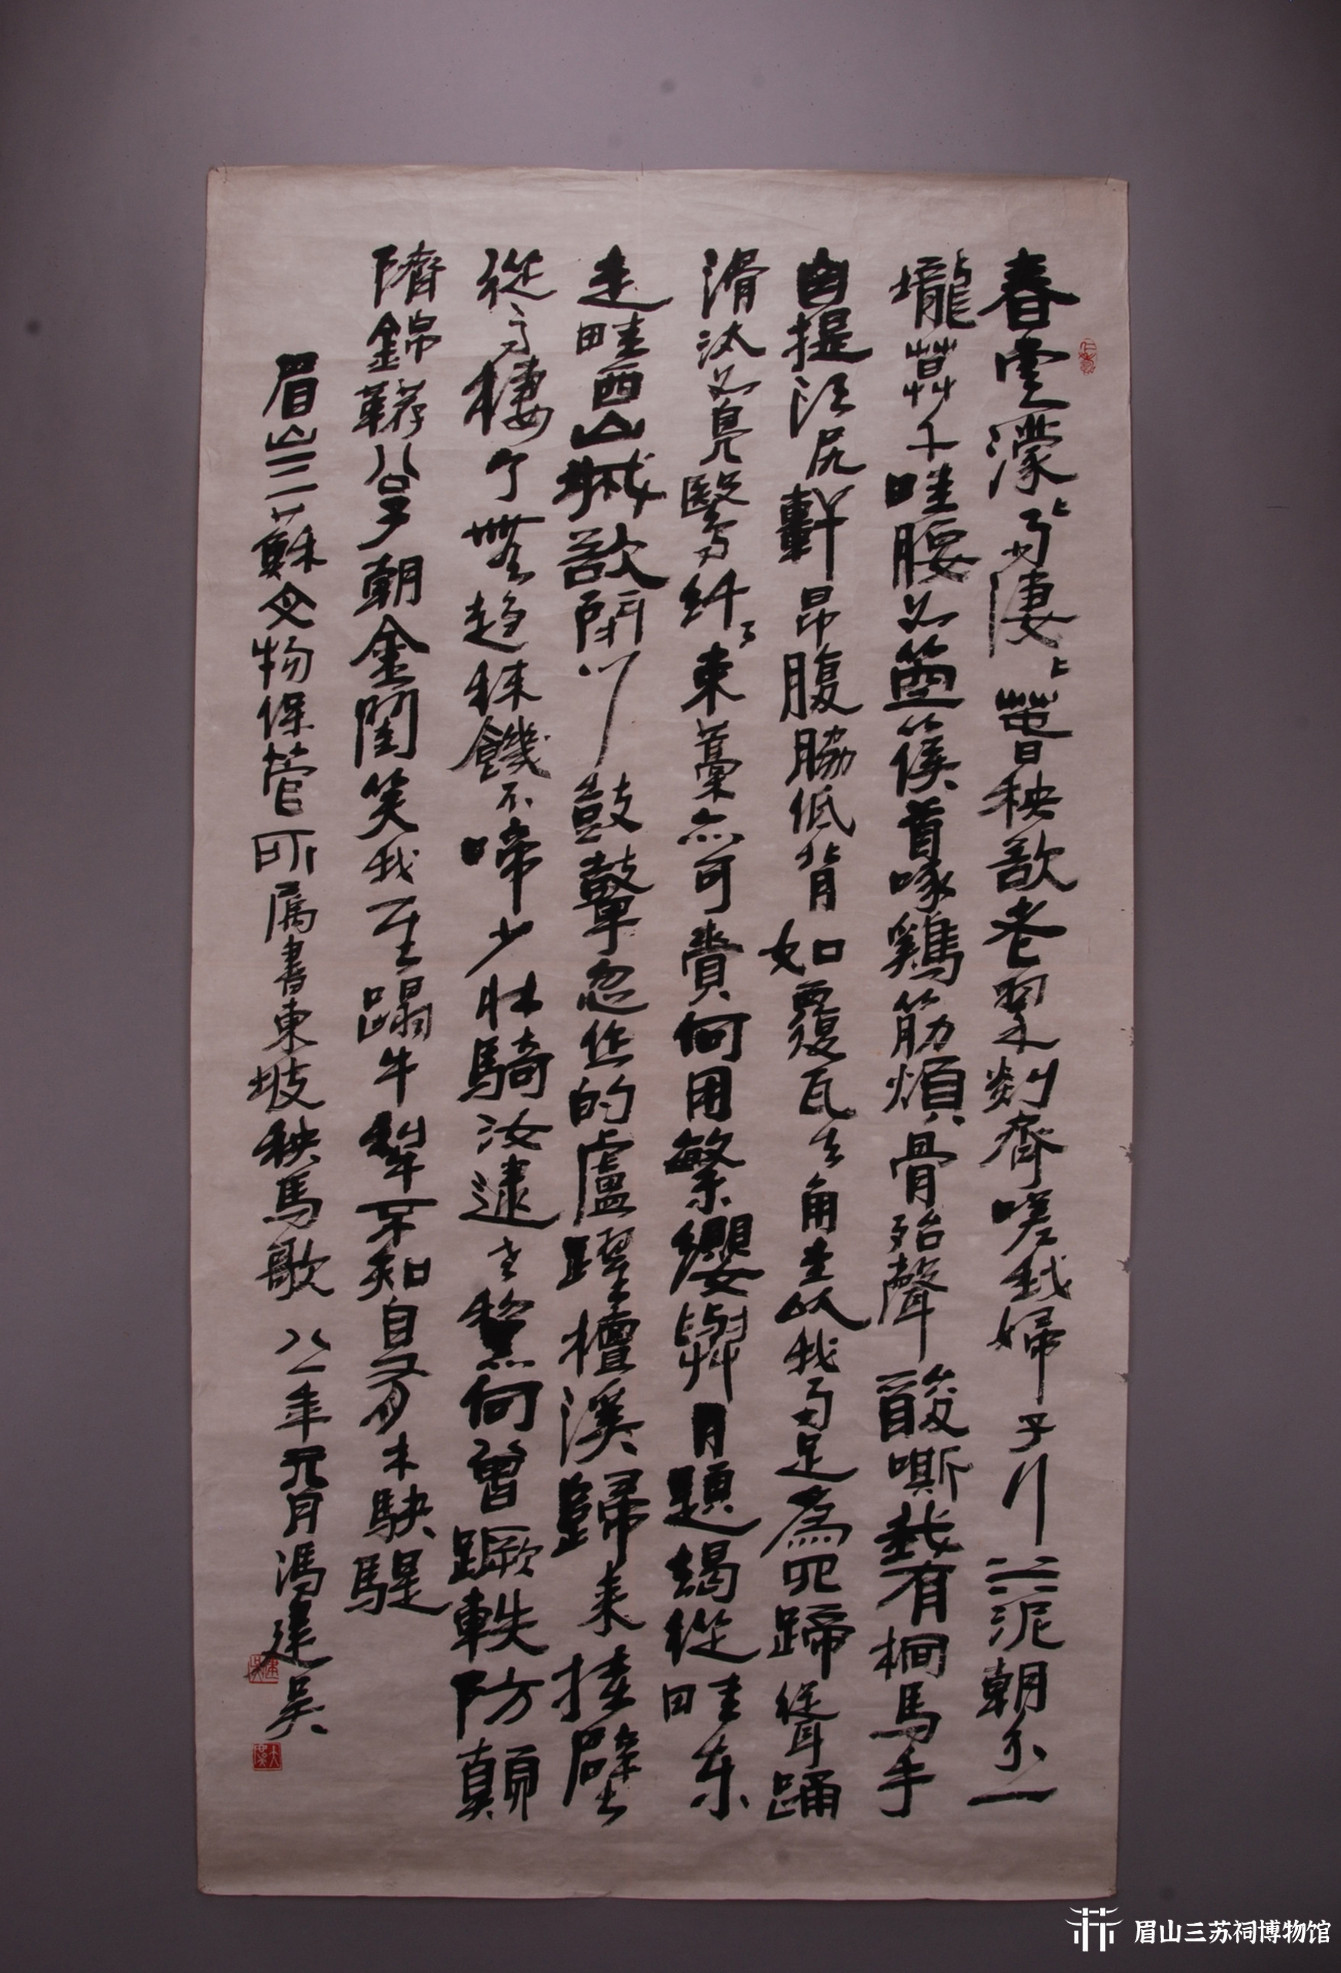 春雲濛〻雨淒〻春秧欲老翠剡齊嗟我婦子行水泥朝分一
壠暮千畦腰如箜篌首啄鷄筋煩骨殆聲酸嘶我有桐馬手
自提頭尻軒昂腹脇低背如覆瓦去角圭以我兩足為四蹄聳踊
滑汰如鳧鷖纤〻束藁亦可賫何用繁纓與月題朅從畦东
走畦西山城欲閉聞鼓鼙忽作的盧躍檀溪歸来挂壁
從高棲了無趍秣饑不啼少壯騎汝逮老黧何曾蹶軼防顛
隮錦韉公子朝金閨笑我一生蹋牛犂不知自有木駃騠
眉山三蘇文物保管所属書東坡秧馬歌 八一年元月馮建吳
眉山三苏祠博物馆